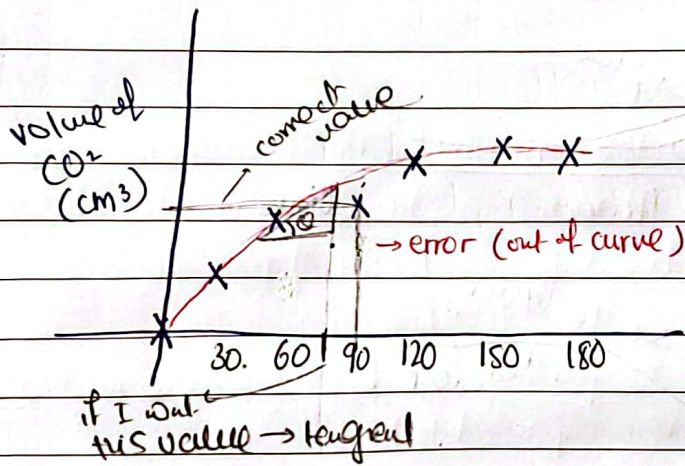 volume of
CO2
(cm3)
correct
value
→ error (out of curve)
30. 60 90 120 150 180
if I want
this value → tangent